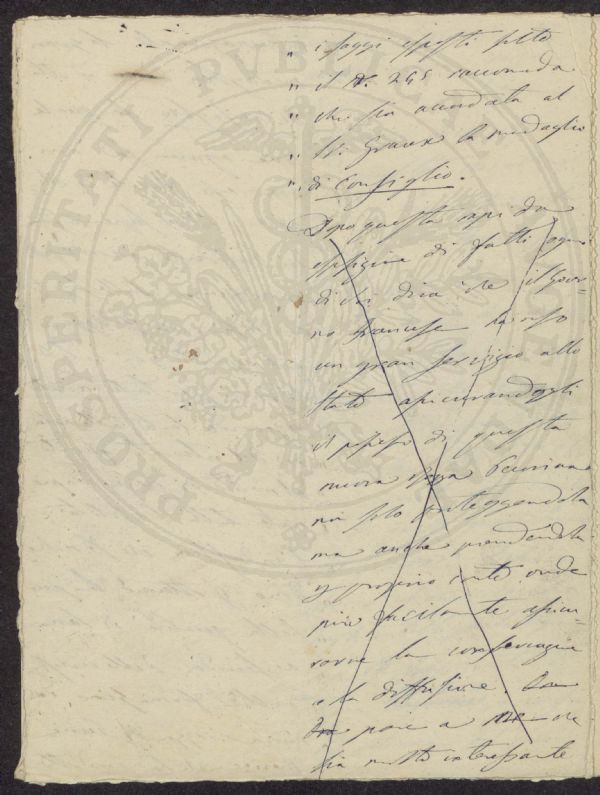 " i saggi esposti sotto
" il N. 245 raccomanda
" che sia accordata al
" Sr. Graux la medaglia
" di Consiglio.
Dopo questa rapida
esposizione di fatti ognu
di voi dirà che il gover-
no francese ha reso
un gran servizio allo
Stato assicurandogli
il possesso di questa
nuova razza
non solo proteggendola
ma anche prendendola
proprio conto onde
più facilmte assicu-
rarne la conservazione
e la diffusione.
pare a me che
sia molto interessante
PROSPERITATI PUBLICAE